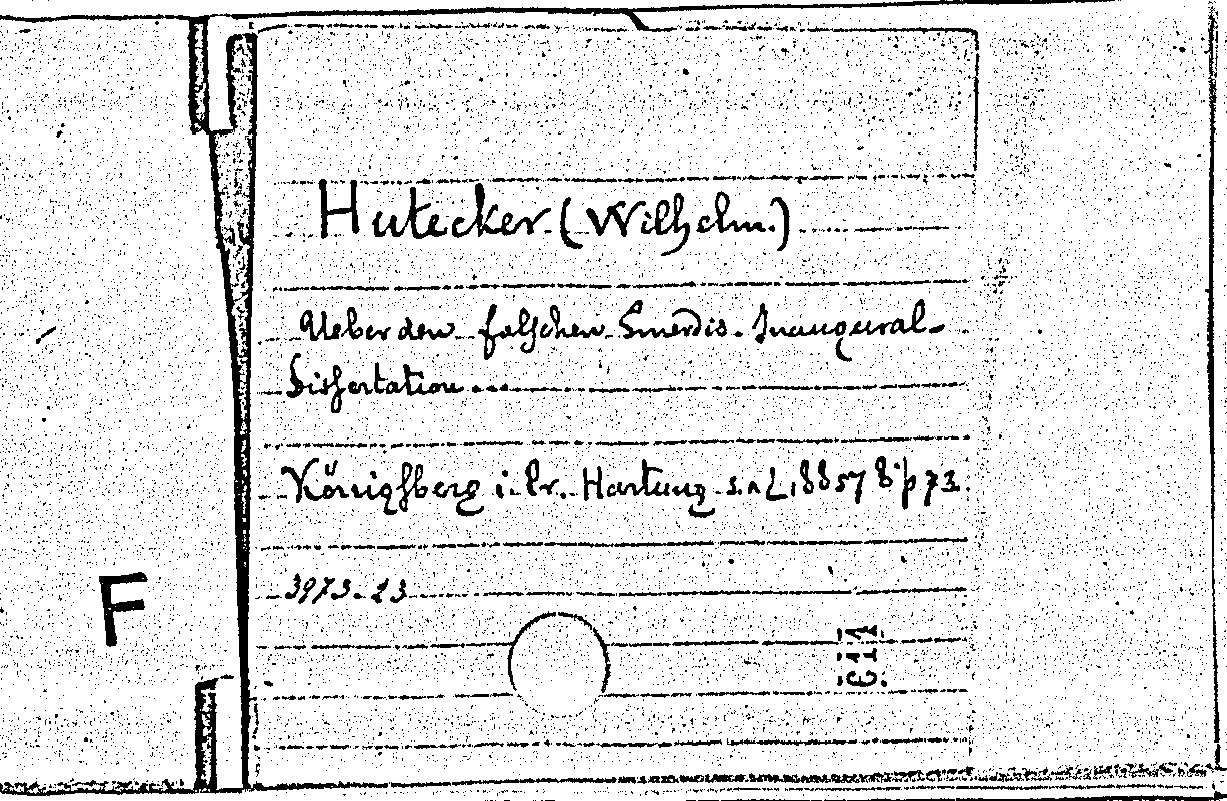 Hutecker (Wilhelm.)
Ueber den falschen Smerdis. Inaugural-
Dissertation ...
Königsberg i. Pr. Hartung 8° p 73.
3973-23
F